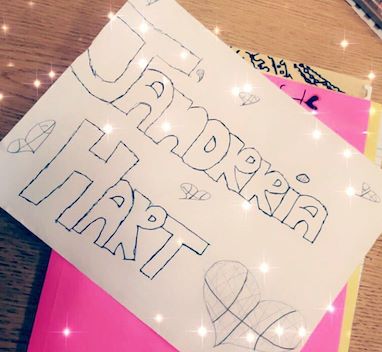 JANORRIA
HART